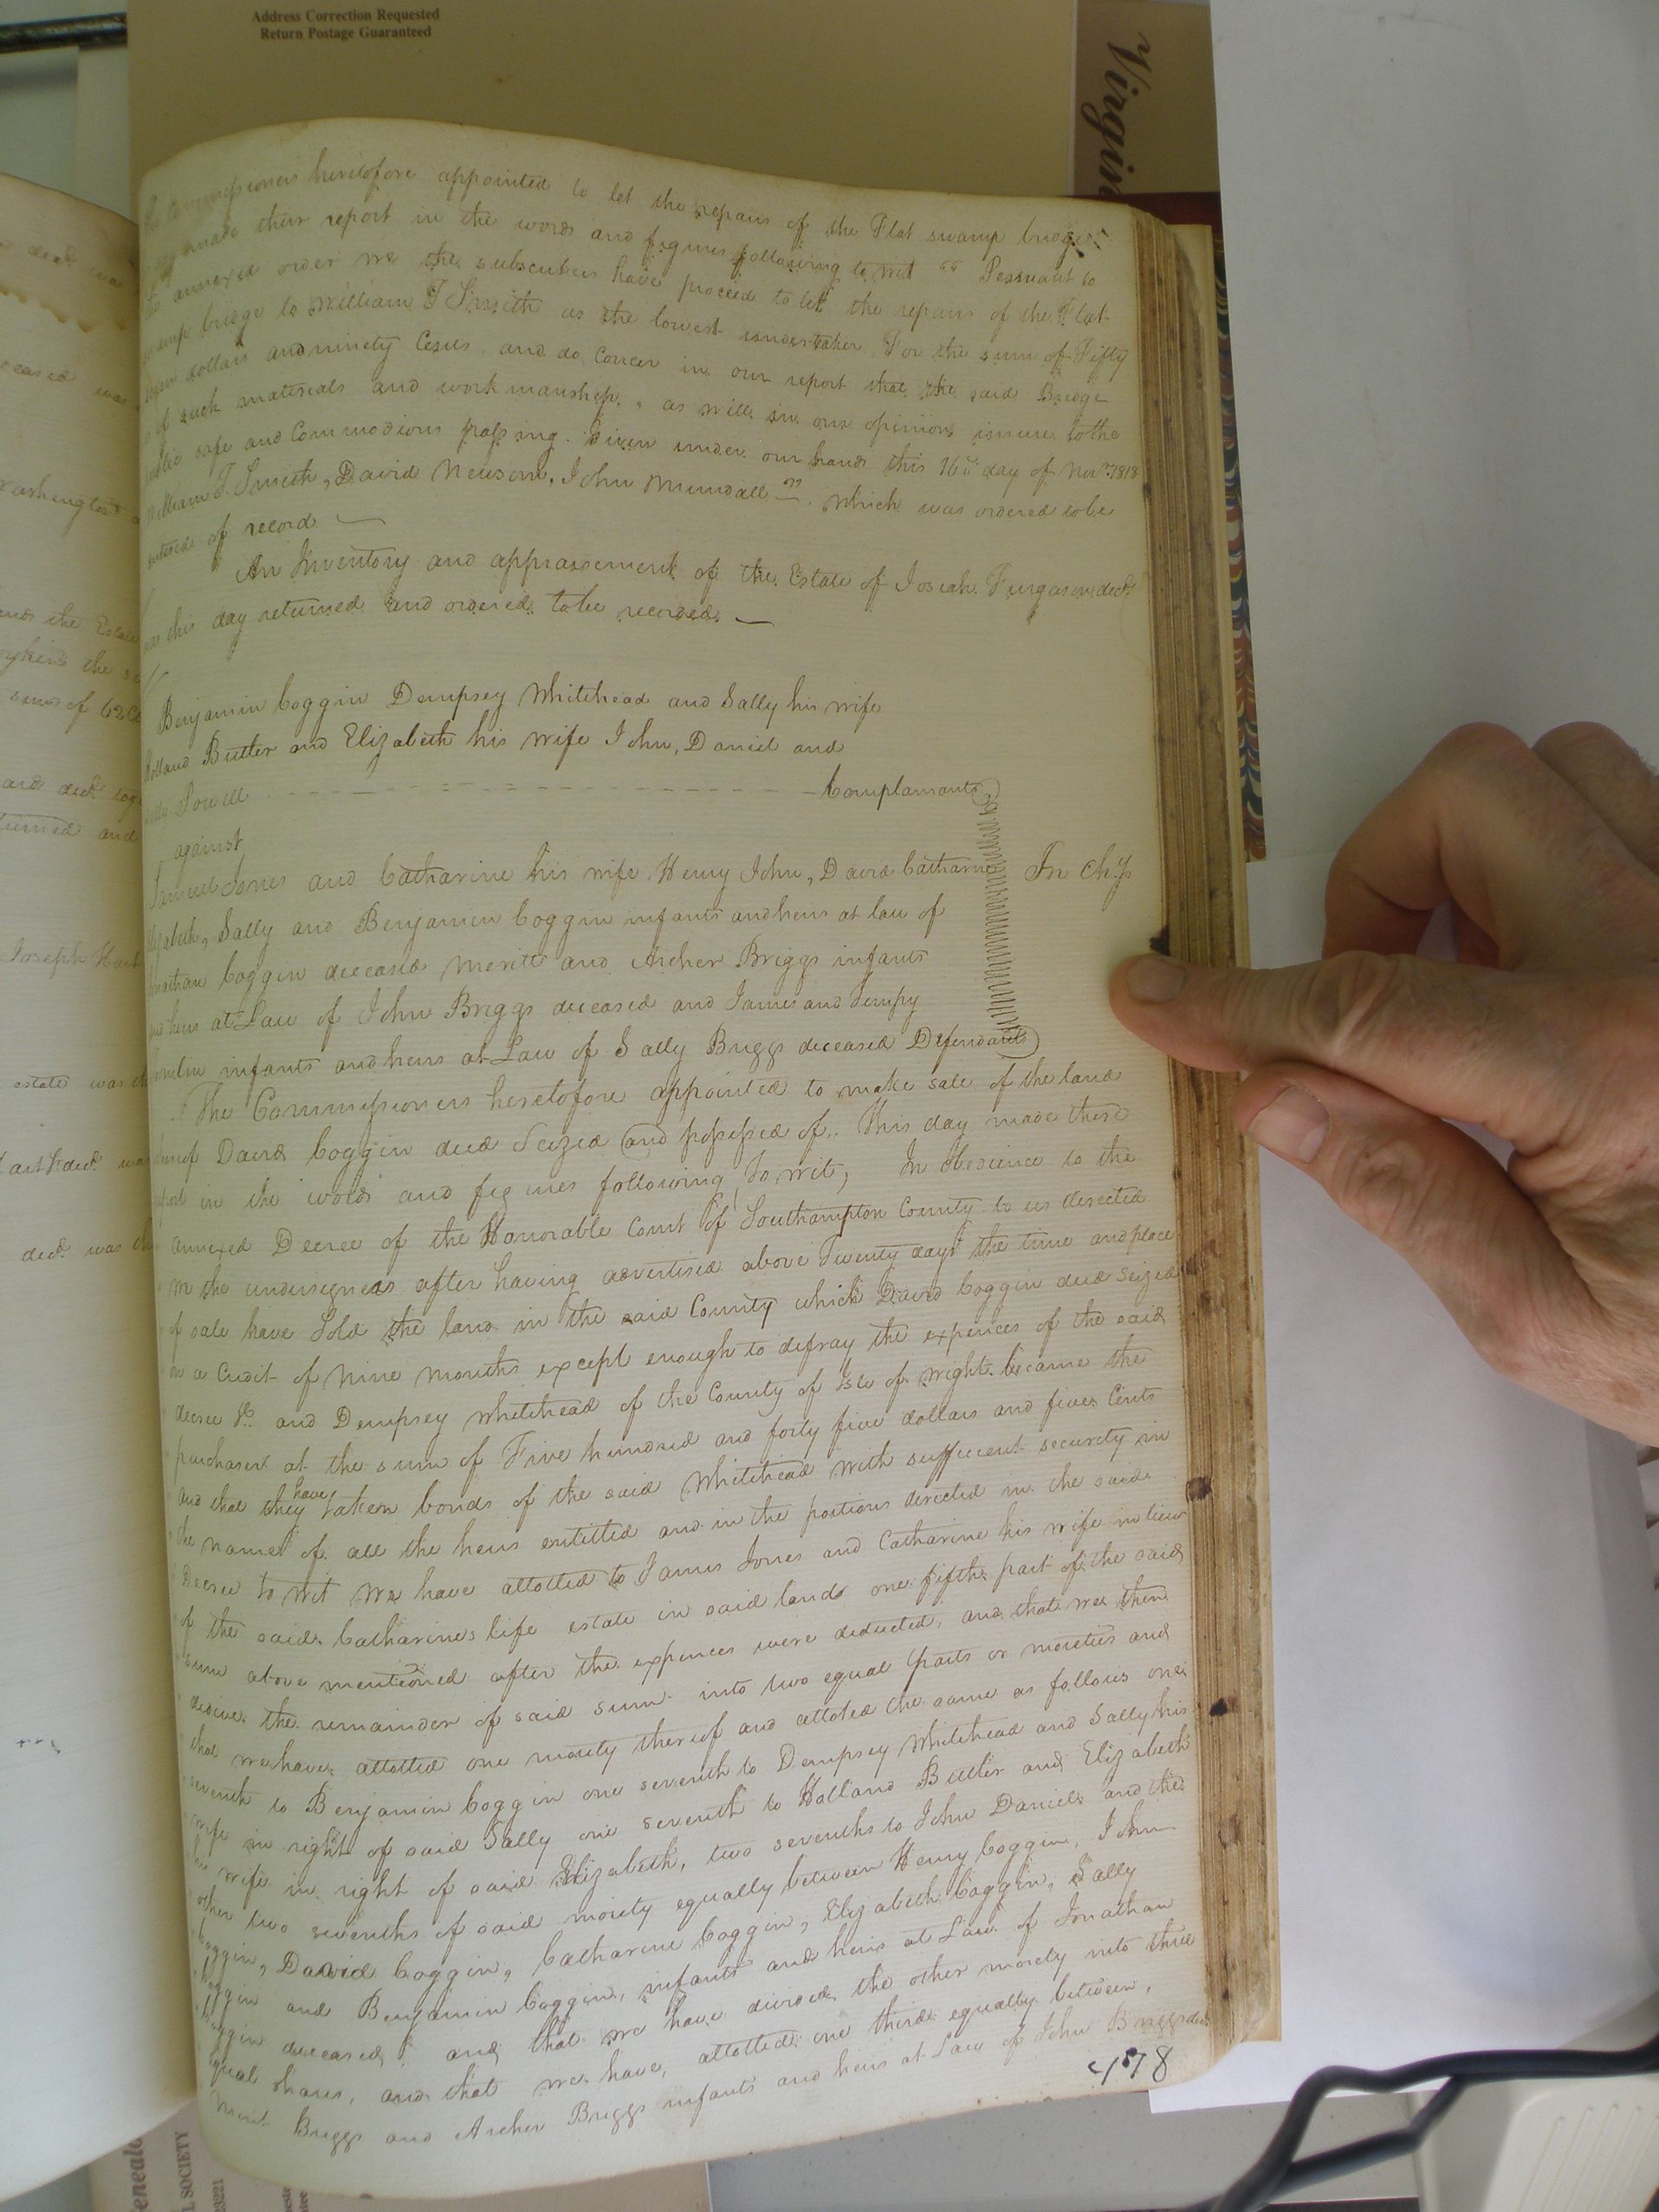 Address Correction Requested
Return Postage Guaranteed
Virgin
The Commissioners heretofore appointed to let the repairs of the Flat swamp bridge
made their report in the words and figures following to wit " Persuant to
the annexed order we the subscribers have proceed to let the repairs of the Flat
swamp bridge to William T Smith as the lowest undertaker For the sum of Fifty
seven dollars and ninety Cents and do Concer in our report that the said Bridge
is of such materials and workmanship, as will in our opinions insure to the
public safe and Commodious passing. Given under our hands this 16th day of Novr 1818
William T. Smith, David Newsom, John Mundall " which was ordered to be
entered of record
An Inventory and appraisement of the Estate of Josiah Furgason decd
was this day returned and ordered to be recorded
Benjamin Coggin Dempsey Whitehead and Sally his wife
Holland Butler and Elizabeth his wife John, Daniel and
Sowell Complainants
against
Jones and Catharine his wife Henry John, David Catharine In Chy
Elizabeth, Sally and Benjamin Coggin infants and heirs at law of
Jonathan Coggin deceased Meritt and Archer Briggs infants
and heirs at Law of John Briggs deceased and James and Tempy
infants and heirs at Law of Sally Briggs deceased Defendants
The Commissioners heretofore appointed to make sale of the land
whereof David Coggin decd Seized and possessed of. This day made there
report in the words and figures following To wit, In obedience to the
annexed Decree of the Honorable Court of Southampton County to us directed
we the undersigned after having advertised above Twenty days the time and place
of sale have Sold the land in the said County which David Coggin decd Seized
on a Credit of Nine months except enough to defray the expences of the said
decree &c and Dempsey Whitehead of the County of Isle of wright became the
purchaser at the sum of Five hundred and forty five dollars and five Cents
and that they have taken bonds of the said Whitehead with sufficient security in
the names of all the heirs entitled and in the portions directed in the said
Decree to wit We have allotted to James Jones and Catharine his wife in lieu
of the said Catharines life estate in said lands one fifth part of the said
sum above mentioned after the expences were deducted, and that we then
devive the remainder of said sum into two equal parts or moieties and
that we have allotted one moiety thereof and alloted the same as follows one
seventh to Benjamin Coggin one seventh to Dempsey Whitehead and Sally his
wife in right of said Sally one seventh to Holland Butler and Elizabeth
his wife in right of said Elizabeth, two sevenths to John Daniel and the
other two sevenths of said moiety equally between Henry Coggin, John
Coggin, David Coggin, Catharine Coggin, Elizabeth Coggin, Sally
Coggin and Benjamin Coggin, infants and heirs at Law of Jonathan
Coggin deceased, and that we have divided the other moiety into three
equal shares, and that we have, allotted one third equally between,
Merit Briggs and Archer Briggs infants and heirs at Law of John Briggs decd
478
L SOCIETY
23221